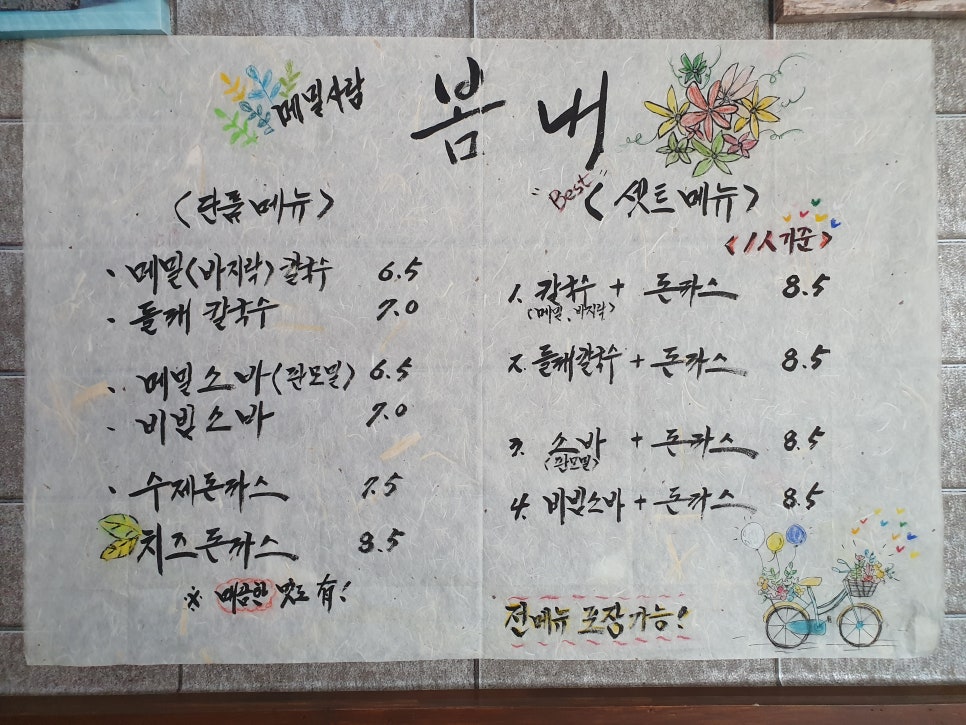 메밀사랑
봄내
<단품메뉴>
· 메밀<바지락>칼국수 6.5
· 들깨 칼국수 7.0
· 메밀소바<판모밀> 6.5
· 비빔소바 7.0
· 수제돈까스 7.5
치즈돈까스 8.5
※ 매콤한 맛도 有!
"Best" <셋트메뉴>
<1人기준>
1. 칼국수 + 돈까스 8.5
<메밀, 바지락>
2. 들깨칼국수 + 돈까스 8.5
3. 소바 + 돈까스 8.5
<판모밀>
4. 비빔소바 + 돈까스 8.5
전메뉴 포장가능!